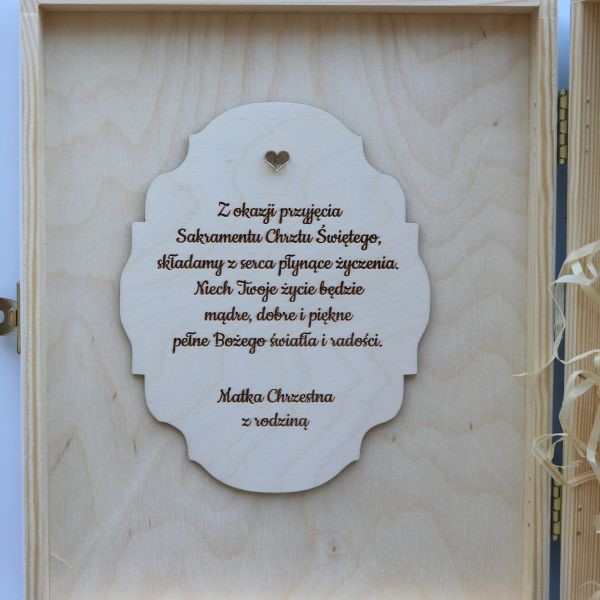 Z okazji przyjęcia
Sakramentu Chrztu Świętego,
składamy z serca płynące życzenia.
Niech Twoje życie będzie
mądre, dobre i piękne
pełne Bożego światła i radości.
Matka Chrzestna
z rodziną